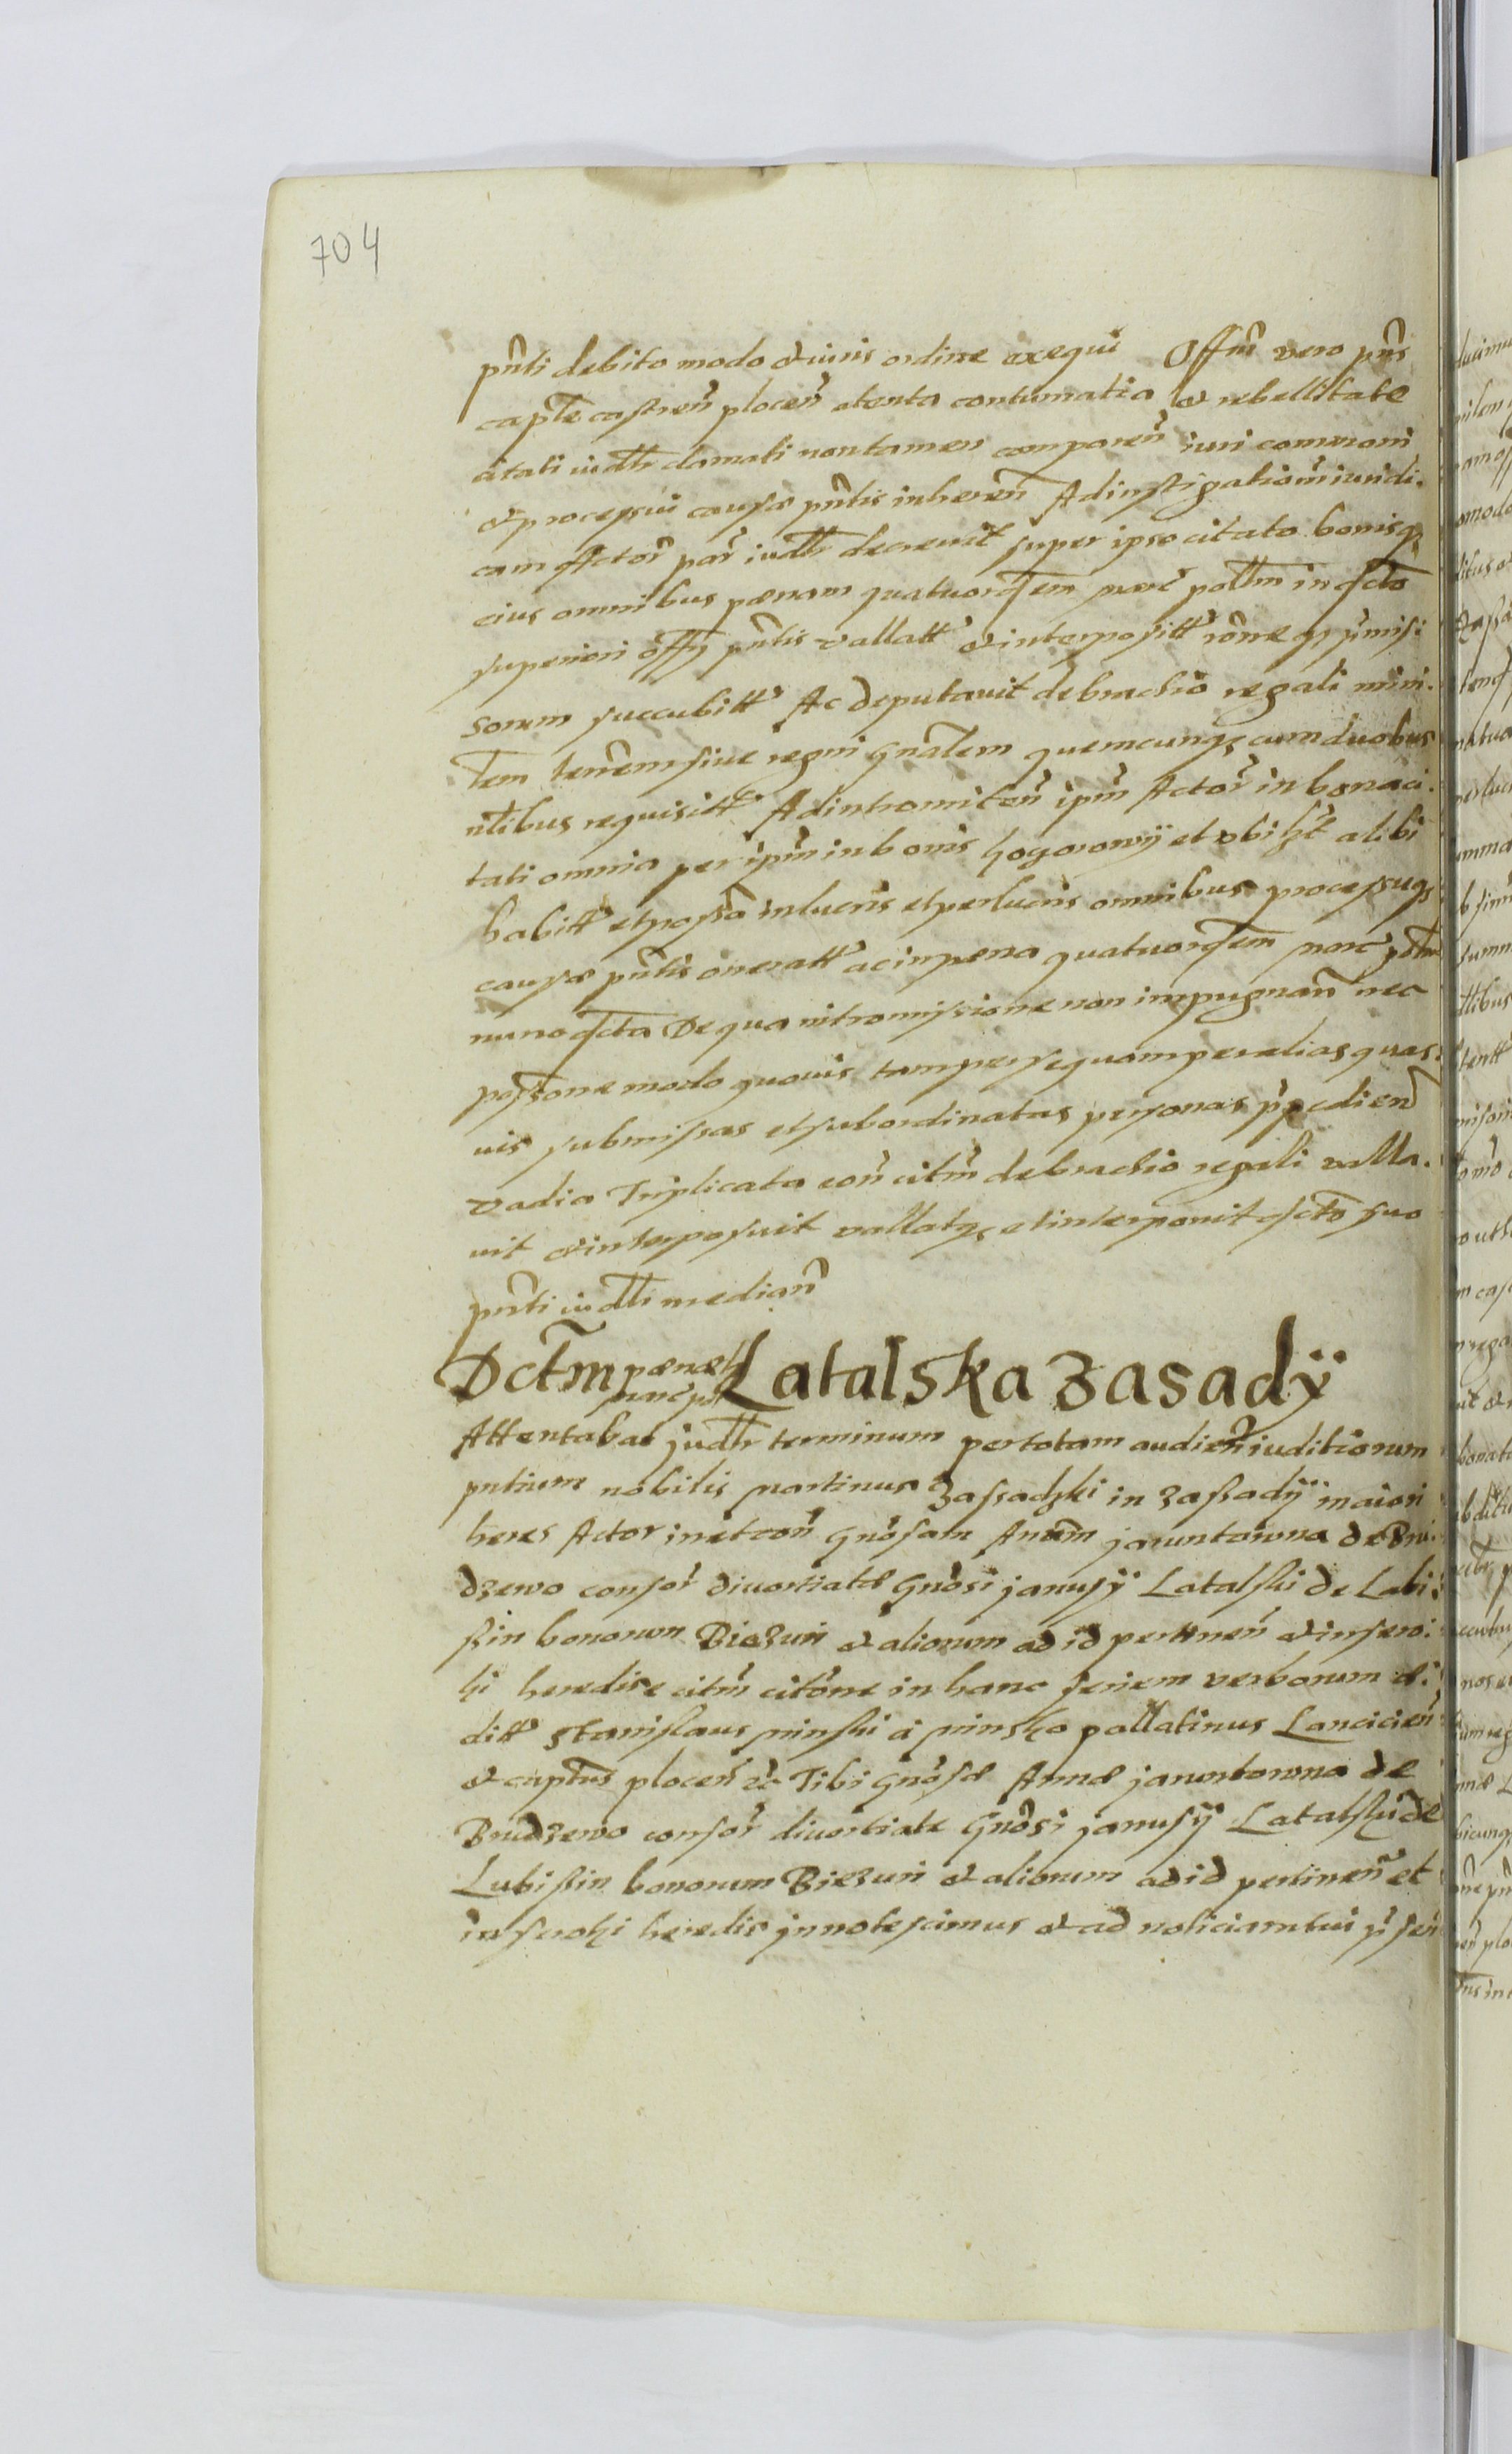 704
pñti debito modo & iuris ordine exequi Offm̃ vero pñs
capᵗle castreñ ploceñ atenta contumatia & rebellitate
citati iudlr clamati non tamen compareñ iuri communi
& processui causæ pñtis inhereñ Ad instigationem iuridi.
cam Actor par iudlr decrevit super ipso citato bonisq
eius omnibus pœnam quatuordem marc pollm in dcto
superiori offy pñtis vallatt & interpositt rõne p̃misi
sorum succubitt Ac deputavit de brachio regali mini.
lem terrem sive regni gñalem quemcunq cum duobus
nlibus requisitt Ad intromitteñ ipm̃ Actor in bona ci.
tati omnia per ipm̃ in bonis hogorowÿ et ubi hẽt alibi
habitt et possa in lucris et per lucris omnibus processuq
causæ pñtis oneratt ac in pœna quatuordem marc
nunc dcta De qua intromissione non impugnañ nec
possione modo quovis tam per se quam per alias quas.
vis submissas et subordinatas personas ꝑpediend
vadia Triplicata coñ citm̃ de brachio regali valla.
vit & interposuit vallatq et interponit dcto suo
pñti iudli medianᷓ
Dctm̃ pœnæ
marc
Latalska Zasadÿ
Attentabat judlr terminum per totam audieñ iuditiorum
pntium nobilis Martinus Zassadzki in Zassadÿ maiori
heres Actor inet coñ Gñosam Annam jaruntowna de Bru.
dzewo consor divortiatæ Gñosi janusÿ Latalski de Labi:
ssin bonorum Biezuń & aliorum ad id pertineñ & insero:
hi heredise citm̃ citõne in hanc seriem verborum e.
ditt Stanislaus Minski à Minsko pallatinus Lancicieñ
& captñs ploceñ &c Tibi Gñosæ Annæ jaruntowna de
Brudzewo consor divortiate Gñosi janusÿ Latalski de
Lubissin bonorum Biezuń & aliorum ad id pertineñ et
in serohi heredis innotescimus & ad noticiam tui